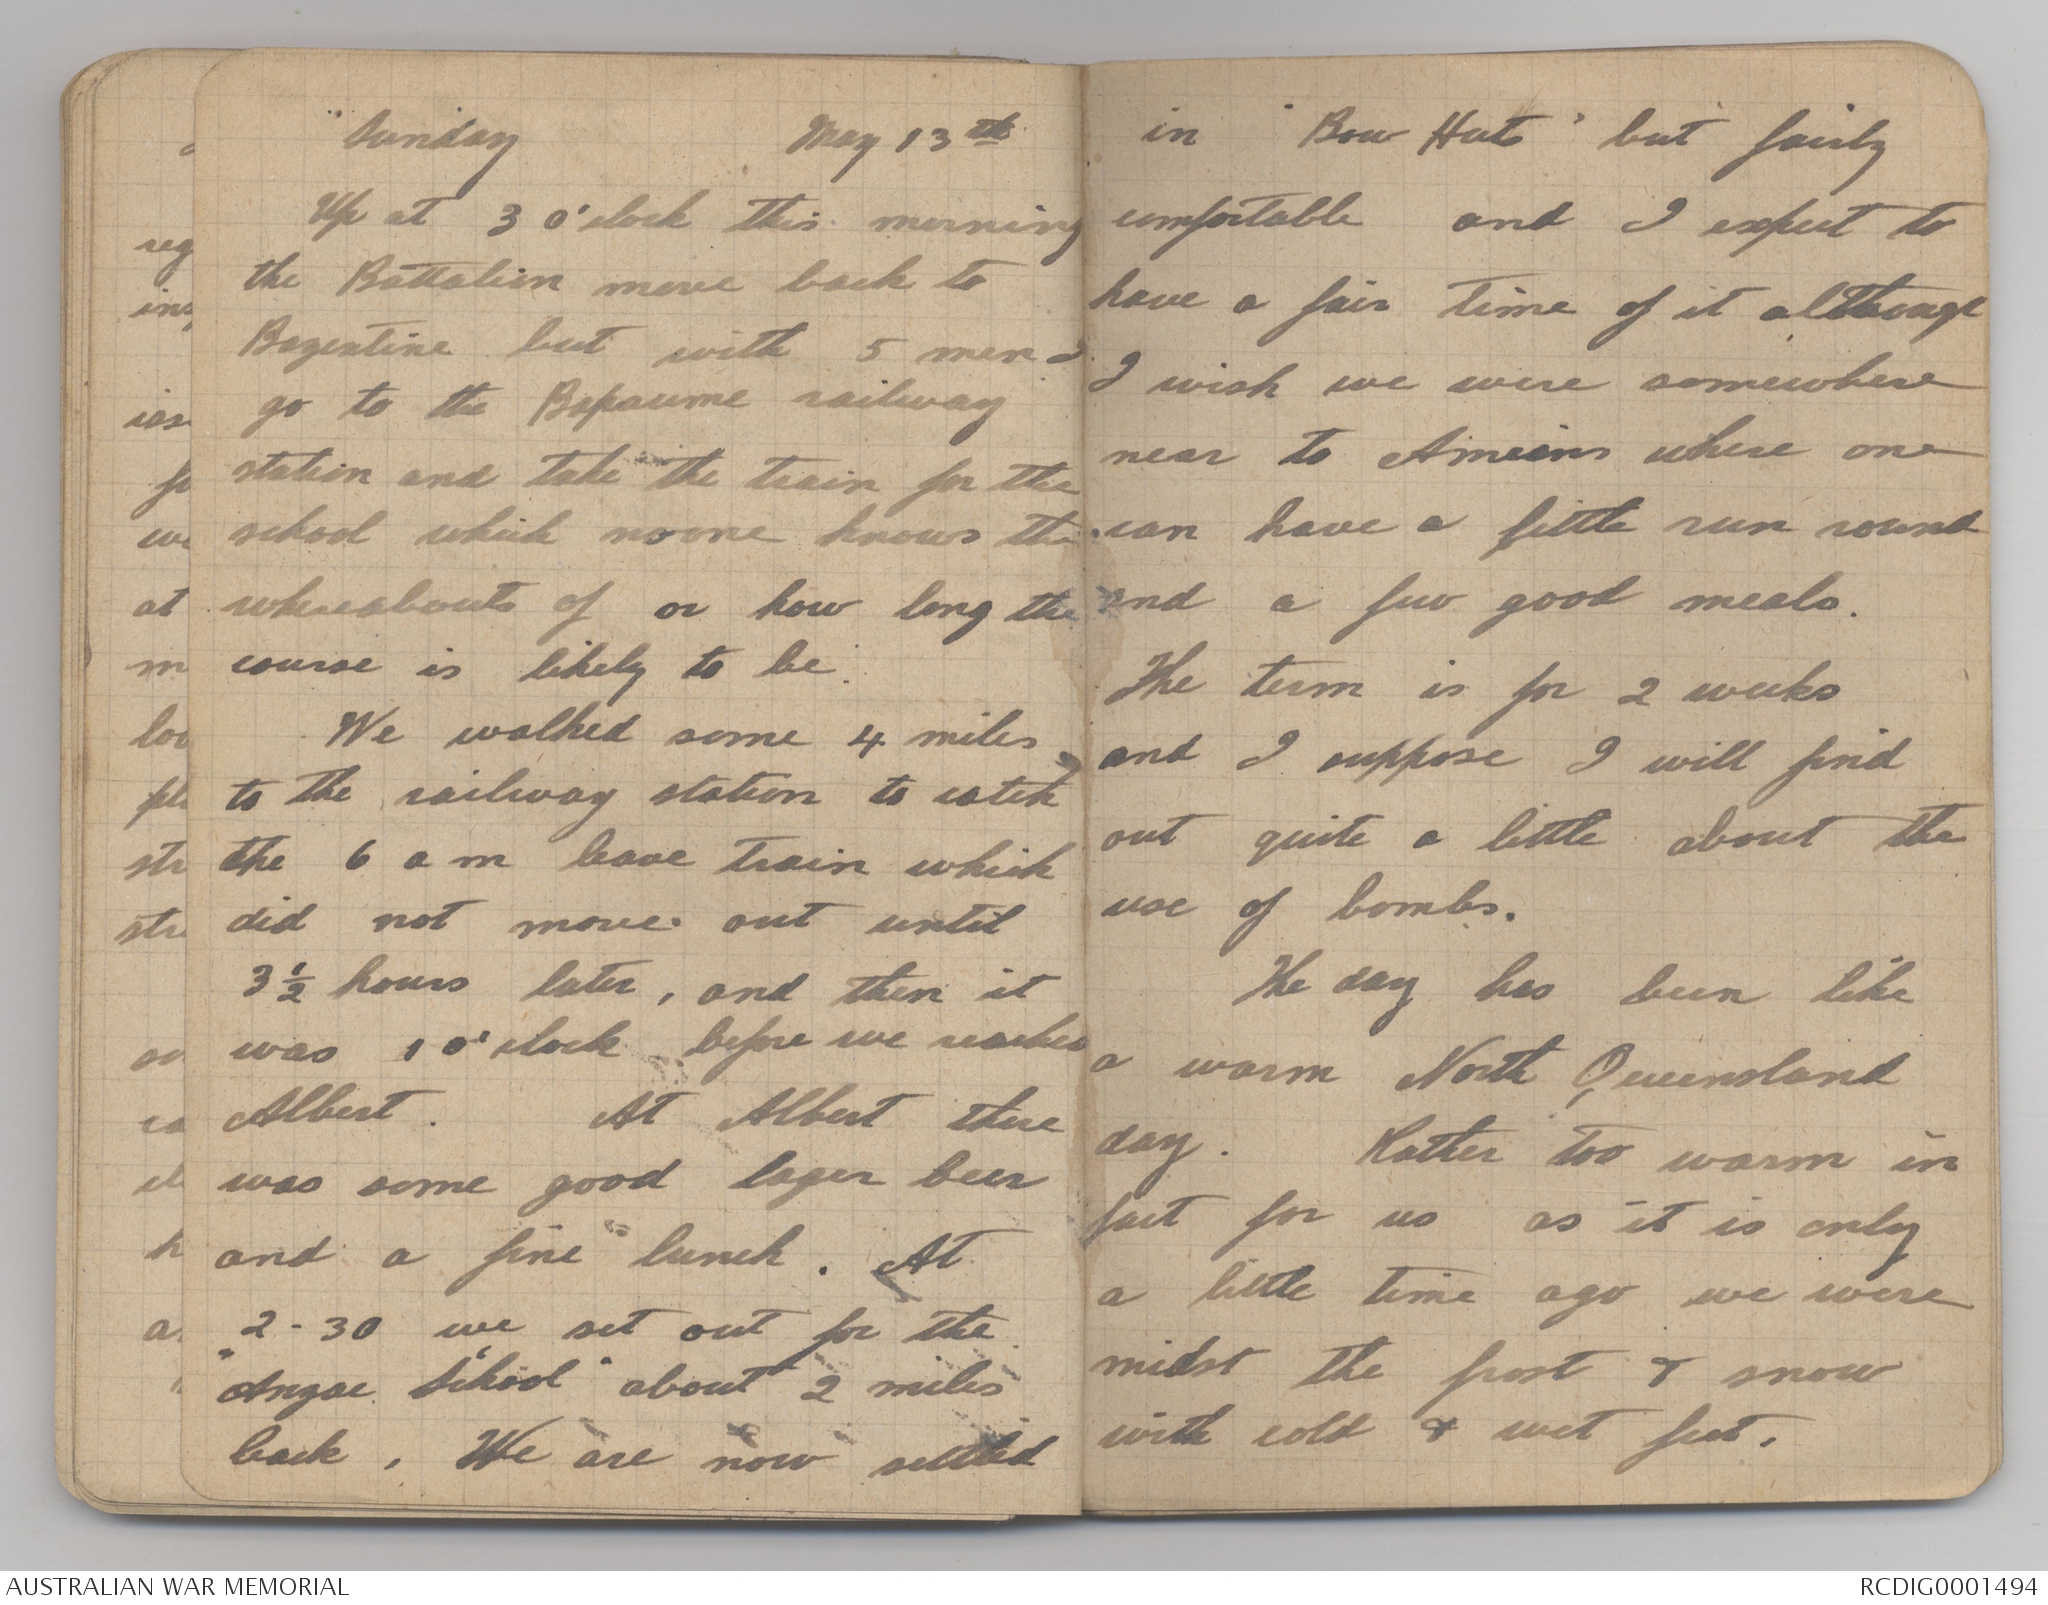 Sunday May 13th
Up at 3 o'clock this morning
the Battalion move back to
Bazentine but with 5 men I
go to the Bapaume railway
station and take the train for the
school which noone knows the
whereabouts of or how long the
course is likely to be.
We walked some 4 miles
to the railway station to catch
the 6 a m leave train which
did not move out until
3½ hours later, and then it
was 1 o'clock before we reached
Albert. At Albert there
was some good lager beer
and a fine lunch. At
2-30 we set out for the
"Anzac School" about 2 miles
back, We are now settled
in "Bow Huts" but fairly
comfortable and I expect to
have a fair time of it although
I wish we were somewhere
near to Amiens where one
can have a little run round
and a few good meals.
The term is for 2 weeks
and I suppose I will find
out quite a little about the
use of bombs.
The day has been like
a warm North Queensland
day. Rather too warm in
fact for us as it is only
a little time ago we were
midst the frost & snow
with cold & wet feet.
reg
ing
at
AUSTRALIAN WAR MEMORIAL
RCDIG0001494